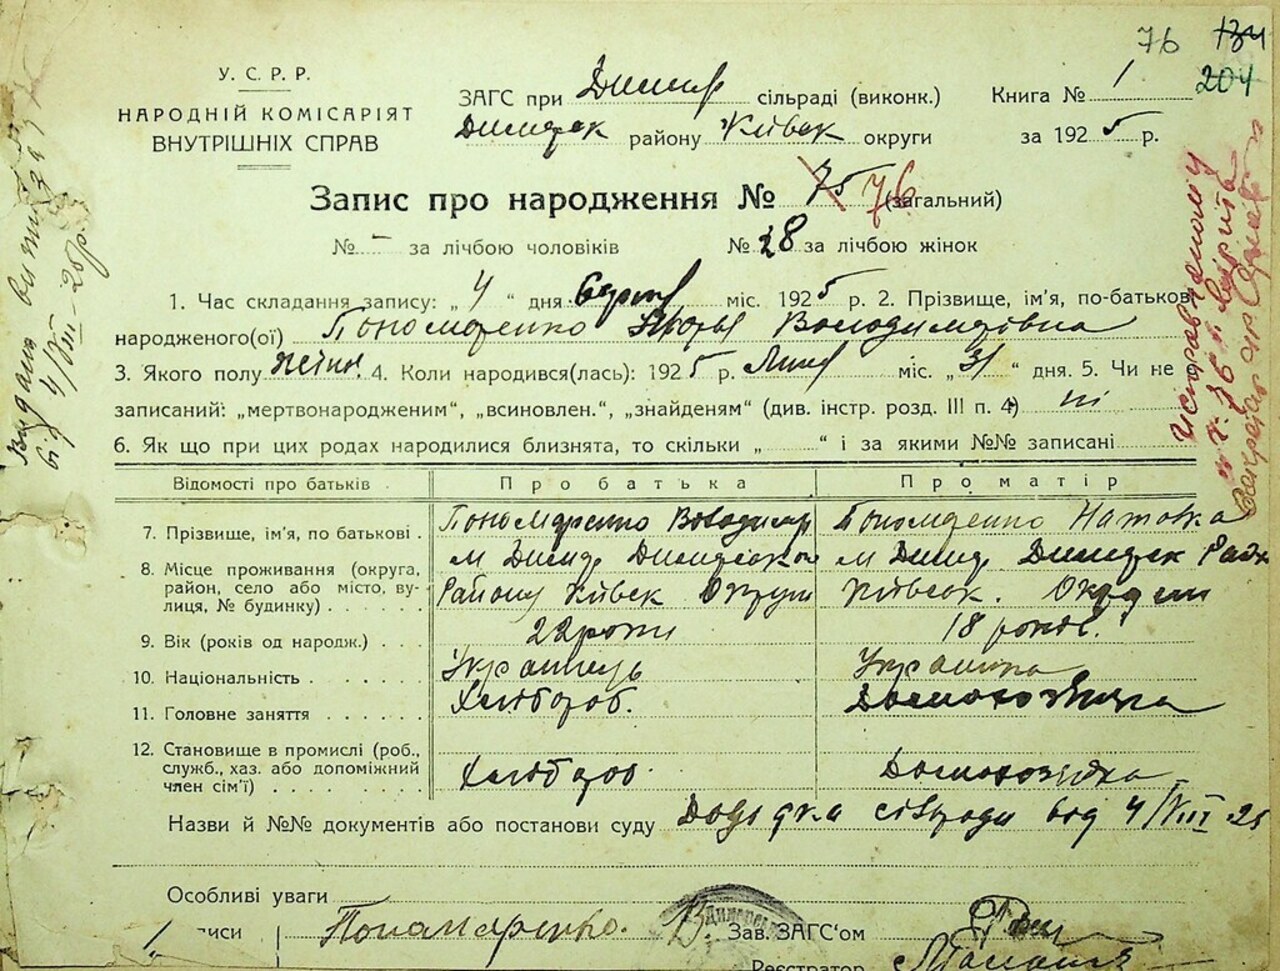 76 134
204
У. С. Р. Р.
НАРОДНІЙ КОМІСАРІЯТ
ВНУТРІШНІХ СПРАВ
ЗАГС при Димир сільраді (виконк.) Книга № 1
Димерск району Київск округи за 1925 р.
Запис про народження № 75 76 (загальний)
№ - за лічбою чоловіків № 28 за лічбою жінок
1. Час складання запису: „ 4 “ дня серпня міс. 1925 р. 2. Прізвище, ім'я, по-батькові
народженого(ої) Пономаренко Володимирівна
3. Якого полу жіноч. 4. Коли народився(лась): 1925 р. Липня міс. „ 31 “ дня. 5. Чи не є
записаний: „мертвонародженим“, „всиновлен.“, „знайденям“ (див. інстр. розд. III п. 4) ні
6. Як що при цих родах народилися близнята, то скільки „ “ і за якими №№ записані
Відомості про батьків Про батька Про матір
7. Прізвище, ім'я, по батькові . Пономаренко Володимир Пономаренко Наталка
8. Місце проживання (округа, м Димир Димирського м Димир Димерск Рай
район, село або місто, ву- Району Київск Округи Київськ. Округи
лиця, № будинку)
9. Вік (років од народж.) 22 роки 18 років.
10. Національність Українець Українка
11. Головне заняття Хлібороб. Домохозяйка
12. Становище в промислі (роб.,
служб., хаз. або допоміжний Хлібороб. Домохозяйка
член сім'ї)
Назви й №№ документів або постанови суду Довідка сільради від 4/VIII 25
Особливі уваги
писи Пономаренко. В. Зав. ЗАГС'ом
Реєстратор
Видана витяг
4/VIII-25р.
Исправленому
76 верить